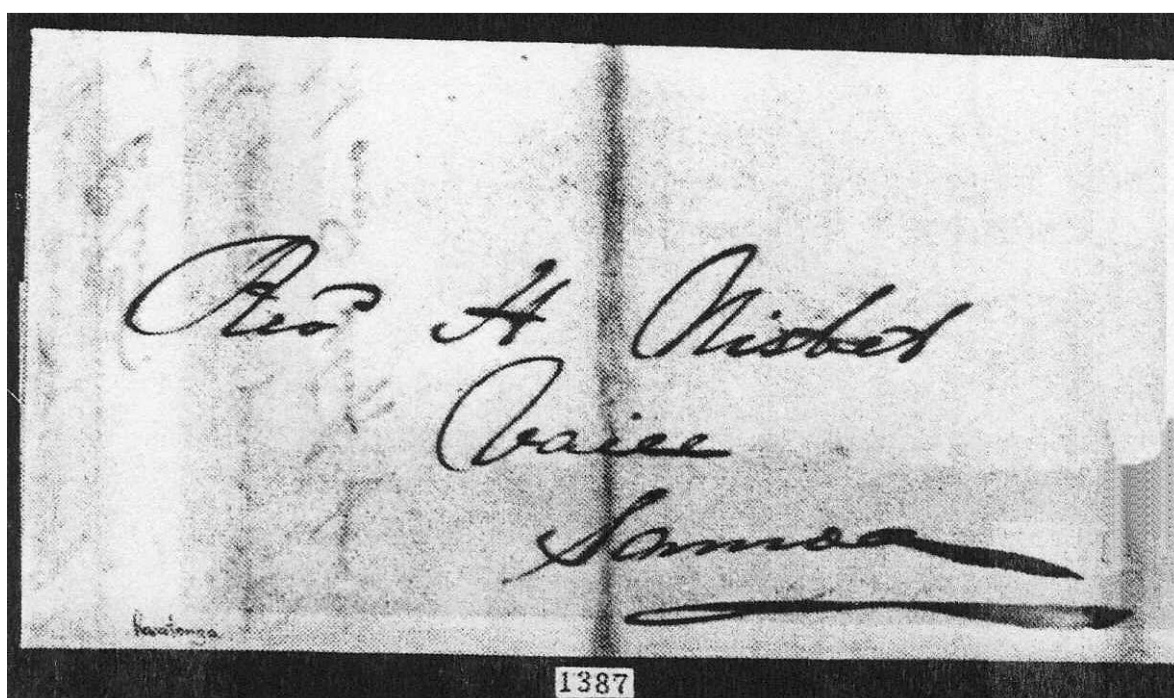 Revd H Nisbet
Vaiee
Samoa
Rarotonga
1387